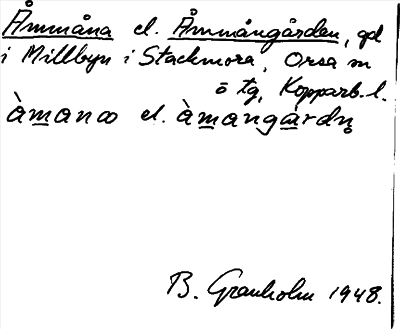 Åmmåna el. Åmmångården, gd
i Millbyn i Stackmora, Orsa sn
o tg, Kopparb. l.
àmanω el. àmangàrdṇ
B. Granholm 1948.